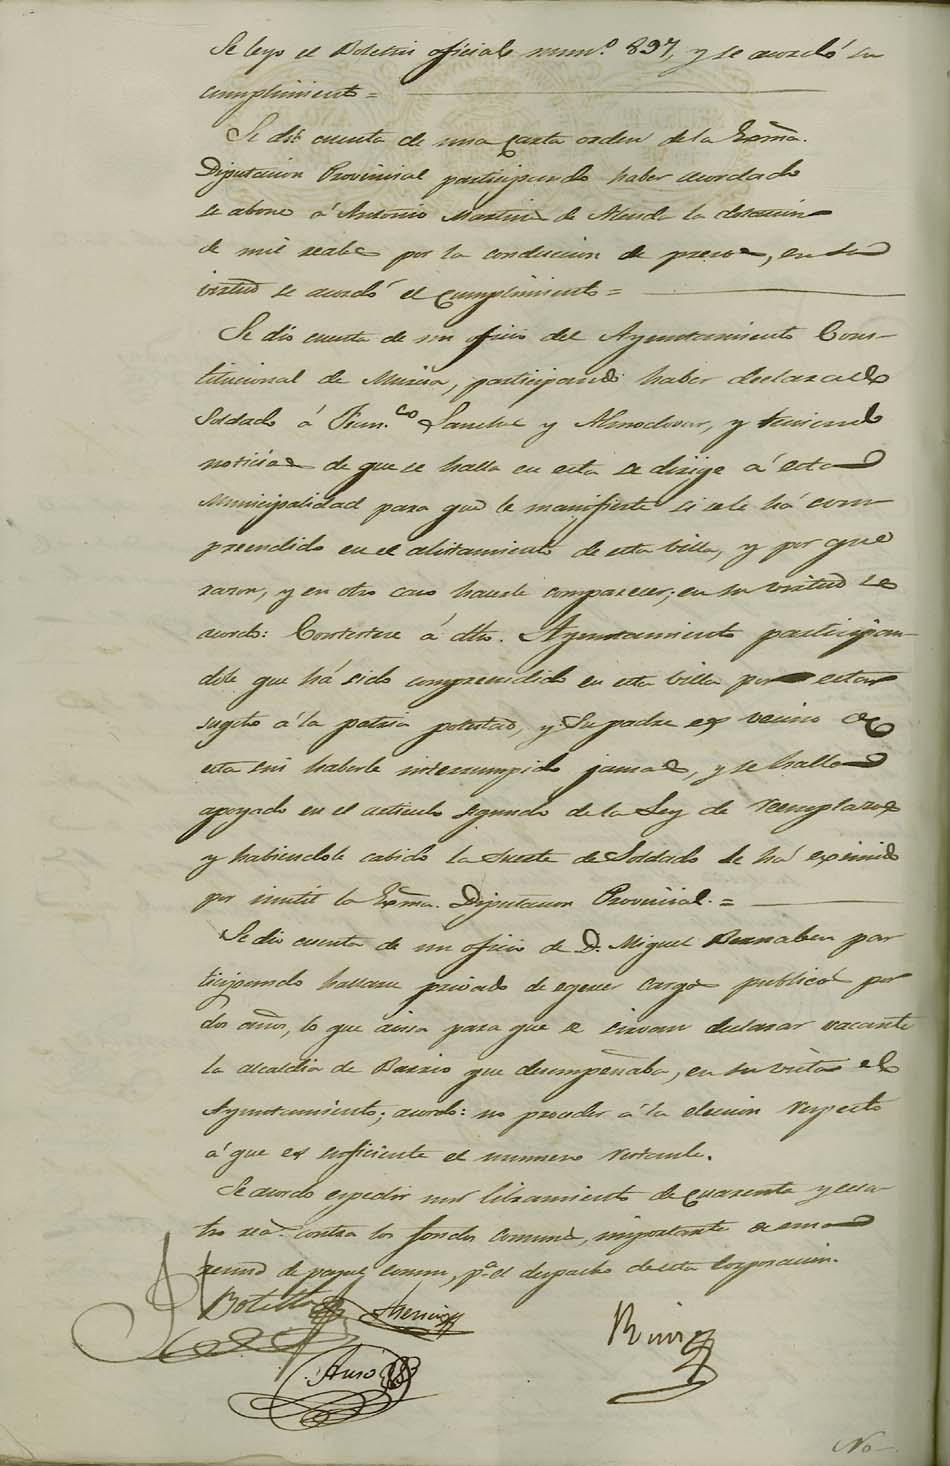 Se leyo el Boletin oficial num.º 897, y se acordó su
cumplimiento =
Se dió cuenta de una Carta orden de la Exma.
Diputacion Provincial participando haber acordado
se abone á Antonio Martinez de la dotacion
de mil reales por la conducion de presos, en su
virtud se acordó el Cumplimiento =
Se dio cuenta de un oficio del Ayuntamiento Cons-
titucional de Murcia, participando haber declarado
Soldado á Fran.co Sanchez y Almodovar, y teniendo
noticias de que se halla en esta se dirige á esta
Municipalidad para que le manifieste si se le há com-
preendido en el alistamiento de esta villa, y por que
razon, y en otro caso hacerle comparecer; en su virtud se
acordo: Contestese á dho. Ayuntamiento participan-
dole que há sido comprendido en esta villa por estar
sugeto á la patria potestad, y su padre es vecino de
esta sin haberle interrumpido jamas, y se halla
apoyado en el articulo segundo de la Ley de Reemplazos
y habiendole cabido la suerte de Soldado le há eximido
por inutil la Exma. Diputacion Provincial. =
Se dio cuenta de un oficio de D. Miguel Bernabeu par
ticipando hallarse privado de egercer cargos publicos por
dos años, lo que avisa para que se sirvan declarar vacante
la alcaldia de Barrio que desempeñaba, en su vista el
Ayuntamiento; acordo: no proceder á la eleccion respecto
á que es suficiente el numero restante.
Se acordo expedir un libramiento de cuarenta y cua-
tro rea.s contra los fondos comunes, importante de una
resma de papel comun, p.a el despacho de esta Corporacion.
Botella
Auso
No